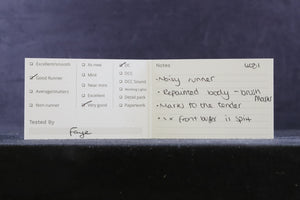 Excellent/smooth
Good Runner
Average/stutters
Non-runner
Tested By
Faye
As new
Mint
Near mint
Excellent
Very good
DC
DCC
DCC Sound
Working Lights
Detail pack
Paperwork
Notes
• Noisy runner
• Repainted body - brush
marks
• Marks to the tender
front buffer is split